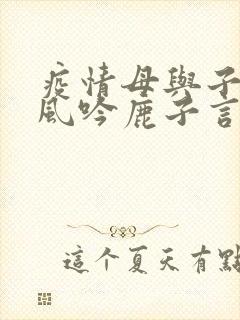 疫情母與子
風吟鹿子言
這个夏天有點